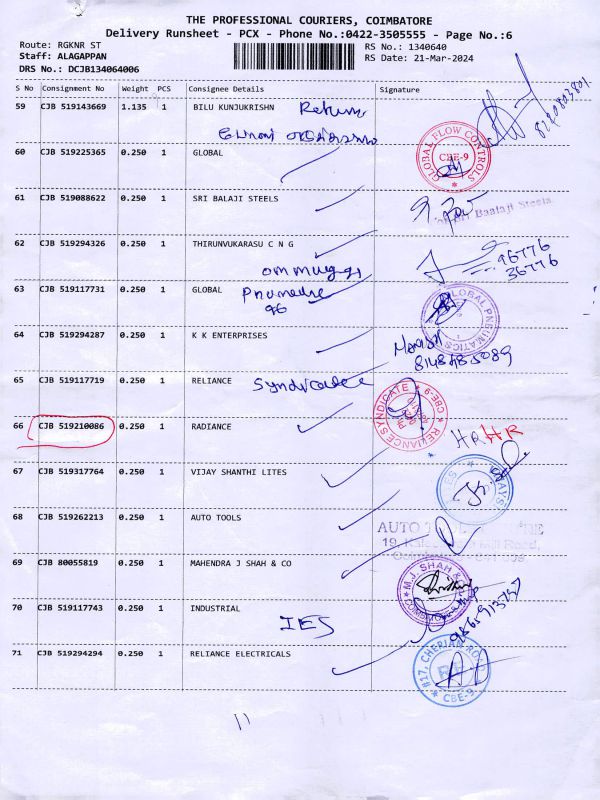 THE PROFESSIONAL COURIERS, COIMBATORE
Delivery Runsheet - PCX - Phone No.:0422-3505555 - Page No.:6
Route: RGKNR ST
RS No.: 1340640
Staff: ALAGAPPAN
RS Date: 21-Mar-2024
DRS No.: DCJB134064006
S No Consignment No Weight PCS Consignee Details Signature
59 CJB 519143669 1.135 1 BILU KUNJUKRISHN Return
60 CJB 519225365 0.250 1 GLOBAL
GLOBAL FLOW CONTROLS CBE-9
61 CJB 519088622 0.250 1 SRI BALAJI STEELS
Baalaji Steels
62 CJB 519294326 0.250 1 THIRUNVUKARASU C N G
96776
36776
63 CJB 519117731 0.250 1 GLOBAL
GLOBAL PNEUMATICS
64 CJB 519294287 0.250 1 K K ENTERPRISES
65 CJB 519117719 0.250 1 RELIANCE Syndicate
RELIANCE SYNDICATE CBE-9
66 CJB 519210086 0.250 1 RADIANCE
HR HR
67 CJB 519317764 0.250 1 VIJAY SHANTHI LITES
68 CJB 519262213 0.250 1 AUTO TOOLS
AUTO
69 CJB 80055819 0.250 1 MAHENDRA J SHAH & CO
M.J. SHAH &
70 CJB 519117743 0.250 1 INDUSTRIAL IES
71 CJB 519294294 0.250 1 RELIANCE ELECTRICALS
817, CHERIAN ROAD
RE
CBE-9